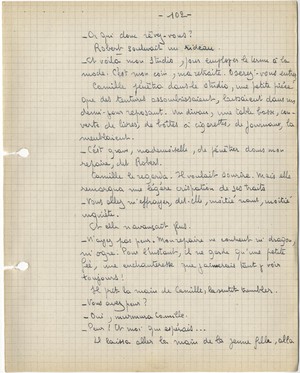 - 102 -
- Or qui donc rêvez-vous?
Robert soulevait un rideau.
- Et voilà mon studio, pour employer le terme à la
mode. C'est mon coin, ma retraite. Oserez-vous entrer
Camille pénétra dans le studio, une petite pièce
que des tentures assombrissaient, laissaient dans un
demi-jour reposant. Un divan, une table basse, cou-
verte de livres, de boîtes à cigarettes, de journaux, la
meublaient.
- C'est grave, mademoiselle, de pénétrer dans mon
repaire, dit Robert.
Camille le regarda. Il voulait sourire. Mais elle
remarqua une légère crispation de ses traits.
- Vous allez m'effrayer, dit-elle, moitié riant, moitié
inquiète.
Et elle n'avançait plus.
- N'ayez pas peur. Mon repaire ne contient ni dragon,
ni ogre. Pour l'instant, il ne garde qu'une petite
fée, une enchanteresse que j'aimerais tant y voir
toujours!
Il prit la main de Camille, la sentit trembler.
- Vous avez peur?
- Oui, murmura Camille.
- Peur! Et moi qui espérais...
Il laissa aller la main de la jeune fille, alla